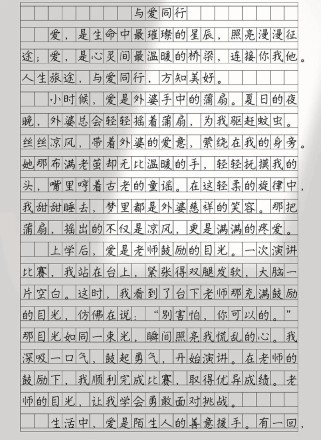 与爱同行
爱，是生命中最璀璨的星辰，照亮漫漫征
途；爱，是心灵间最温暖的桥梁，连接你我他。
人生旅途，与爱同行，方知美好。
小时候，爱是外婆手中的蒲扇。夏日的夜
晚，外婆总会轻轻摇着蒲扇，为我驱赶蚊虫。
丝丝凉风，带着外婆的爱意，萦绕在我的身旁。
她那布满老茧却无比温暖的手，轻轻抚摸我的
头，嘴里哼着古老的童谣。在这轻柔的旋律中，
我甜甜睡去，梦里都是外婆慈祥的笑容。那把
蒲扇，摇出的不仅是凉风，更是满满的疼爱。
上学后，爱是老师鼓励的目光。一次演讲
比赛，我站在台上，紧张得双腿发软，大脑一
片空白。这时，我看到了台下老师那充满鼓励
的目光，仿佛在说：“别害怕，你可以的。”
那目光如同一束光，瞬间照亮我慌乱的心。我
深吸一口气，鼓起勇气，开始演讲。在老师的
鼓励下，我顺利完成比赛，取得优异成绩。老
师的目光，让我学会勇敢面对挑战。
生活中，爱是陌生人的善意援手。有一回，